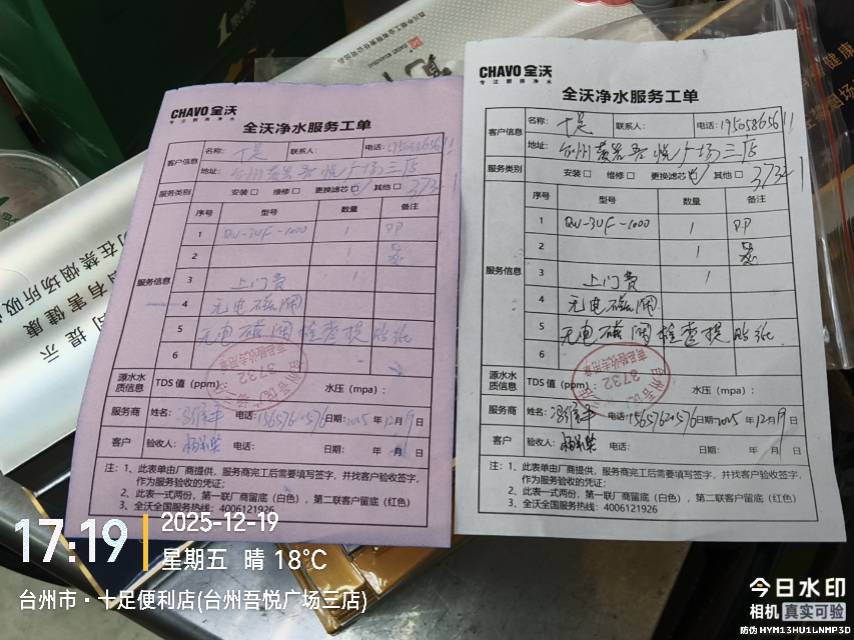 CHAVO 全沃
专注厨房净水
全沃净水服务工单
客户信息 名称：十足 联系人： 电话：19505865611
地址：台州黄岩吾悦广场三店
服务类别 安装□ 维修□ 更换滤芯☑ 其他□ 3732
序号 型号 数量 备注
1 QW-3UF-1000 1 PP
2 1
服务信息 3 上门费 1
4 无电磁阀
5 无电磁阀检查提贴纸
6
源水水质信息 TDS 值（ppm）： 水压（mpa）：
服务商 姓名： 电话：15657621576 日期：2025 年 12 月 19 日
客户 验收人： 电话： 日期： 年 月 日
注：1、此表单由厂商提供，服务商完工后需要填写签字，并找客户验收签字，
作为服务验收的凭证；
2、此表一式两份，第一联厂商留底（白色），第二联客户留底（红色）
3、全沃全国服务热线：4006121926
CHAVO 全沃
专注厨房净水
全沃净水服务工单
客户信息 名称：十足 联系人： 电话：19505865611
地址：台州黄岩吾悦广场三店
服务类别 安装□ 维修□ 更换滤芯☑ 其他□ 3732
序号 型号 数量 备注
1 QW-3UF-1000 1 PP
2 1
服务信息 3 上门费 1
4 无电磁阀
5 无电磁阀检查提贴纸
6
3732
源水水质信息 TDS 值（ppm）： 水压（mpa）：
服务商 姓名： 电话：15657621576 日期：2025 年 12 月 19 日
客户 验收人： 电话： 日期： 年 月 日
注：1、此表单由厂商提供，服务商完工后需要填写签字，并找客户验收签字，
作为服务验收的凭证；
2、此表一式两份，第一联厂商留底（白色），第二联客户留底（红色）
3、全沃全国服务热线：4006121926
17:19
2025-12-19
星期五 晴 18℃
台州市·十足便利店(台州吾悦广场三店)
今日水印
相机 真实可验
防伪 HYM13HU1LNMP3D